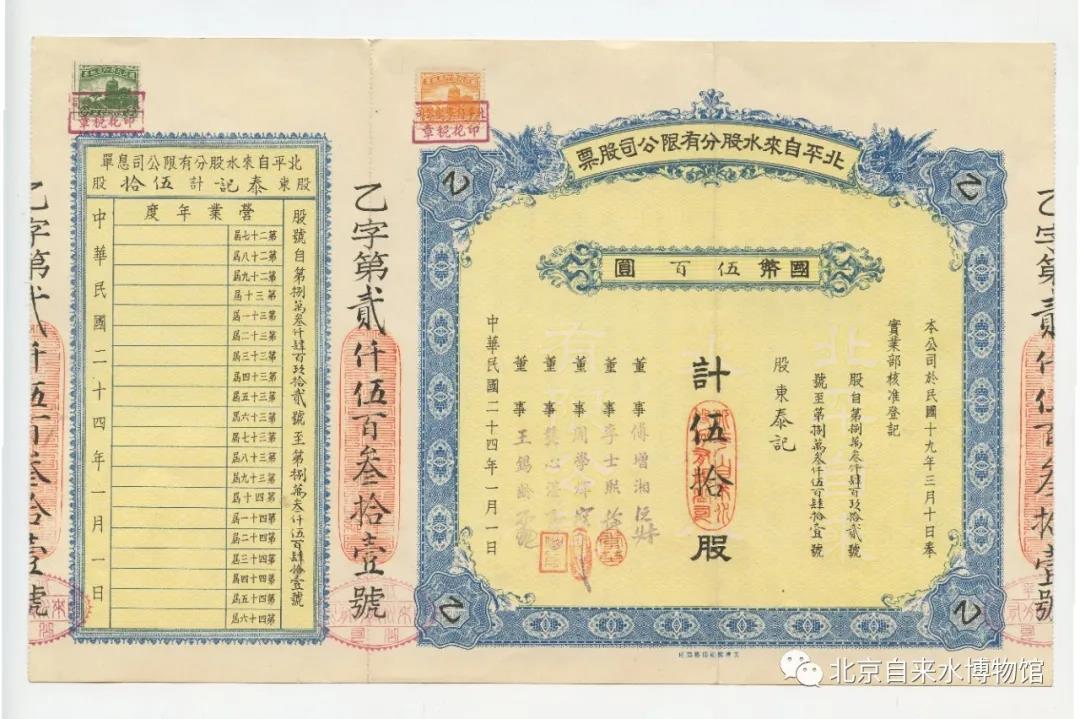 北平自來水股分有限公司股票
國幣伍百圓
本公司於民國十九年三月十日奉
實業部核准登記
股自第捌萬叁仟肆百玖拾貳號
號至第捌萬叁仟伍百肆拾壹號
股東泰記
計伍拾股
董事傅增湘
董事李士熙
董事周學煇
董事
董事王錫齡
中華民國二十四年一月一日
乙
乙
乙
乙
乙字第貳仟伍百叁拾壹號
乙字第貳仟伍百叁拾壹號
乙字第貳仟伍百叁拾壹號
印花稅章
印花稅章
北平自來水股分有限公司息單
股東泰記計伍拾股
股號自第捌萬叁仟肆百玖拾貳號至第捌萬叁仟伍百肆拾壹號
營業年度
第二十七屆
第二十八屆
第二十九屆
第三十屆
第三十一屆
第三十二屆
第三十三屆
第三十四屆
第三十五屆
第三十六屆
第三十七屆
第三十八屆
第三十九屆
第四十屆
第四十一屆
第四十二屆
第四十三屆
第四十四屆
第四十五屆
第四十六屆
中華民國二十四年一月一日
北京自来水博物馆